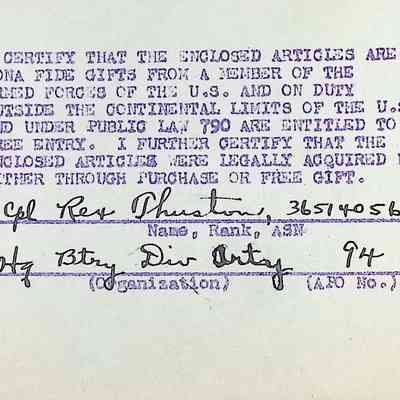 CERTIFY THAT THE ENCLOSED ARTICLES ARE
ONA FIDE GIFTS FROM A MEMBER OF THE
RMED FORCES OF THE U.S. AND ON DUTY
UTSIDE THE CONTINENTAL LIMITS OF THE U.S
ND UNDER PUBLIC LAW 790 ARE ENTITLED TO
REE ENTRY. I FURTHER CERTIFY THAT THE
NCLOSED ARTICLES WERE LEGALLY ACQUIRED
ITHER THROUGH PURCHASE OR FREE GIFT.
Cpl Rex Thuston, 36514056
Name, Rank, ASN
Hq Btry Div Arty 94
(Organization) (APO No.)